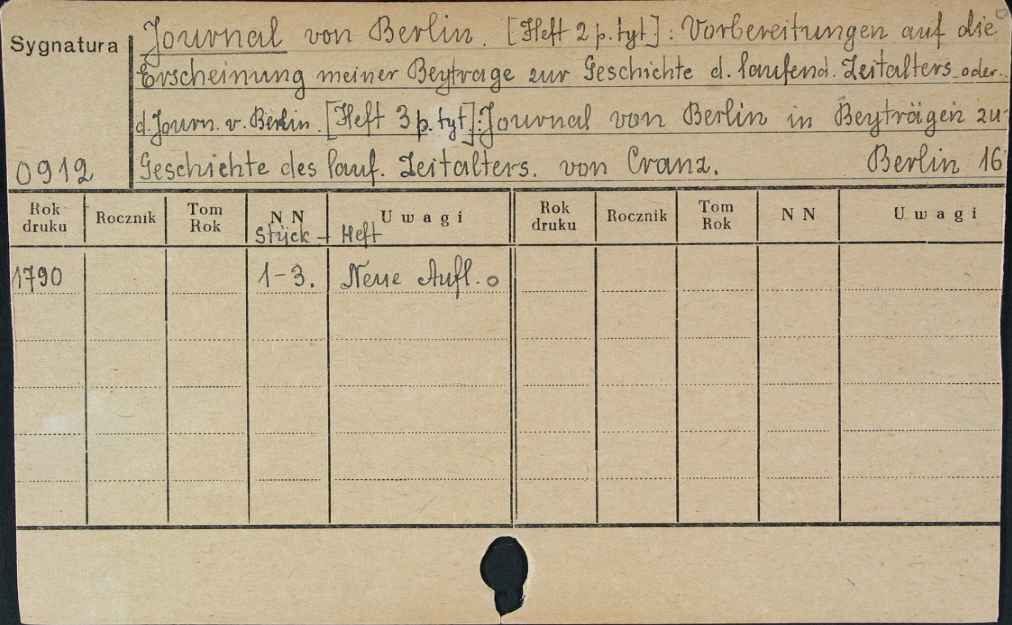 Sygnatura
Journal von Berlin. [Heft 2 p. tyt]: Vorbereitungen auf die
Erscheinung meiner Beytrage zur Geschichte d. laufend. Zeitalters oder.
d. Journ. v. Berlin. [Heft 3 p. tyt]: Journal von Berlin in Beyträgen zu
0912
Geschichte des lauf. Zeitalters. von Cranz. Berlin 16
Rok druku Rocznik Tom Rok N N Uwagi Rok druku Rocznik Tom Rok N N Uwagi
Stück - Heft
1790 1-3. Neue Aufl. o